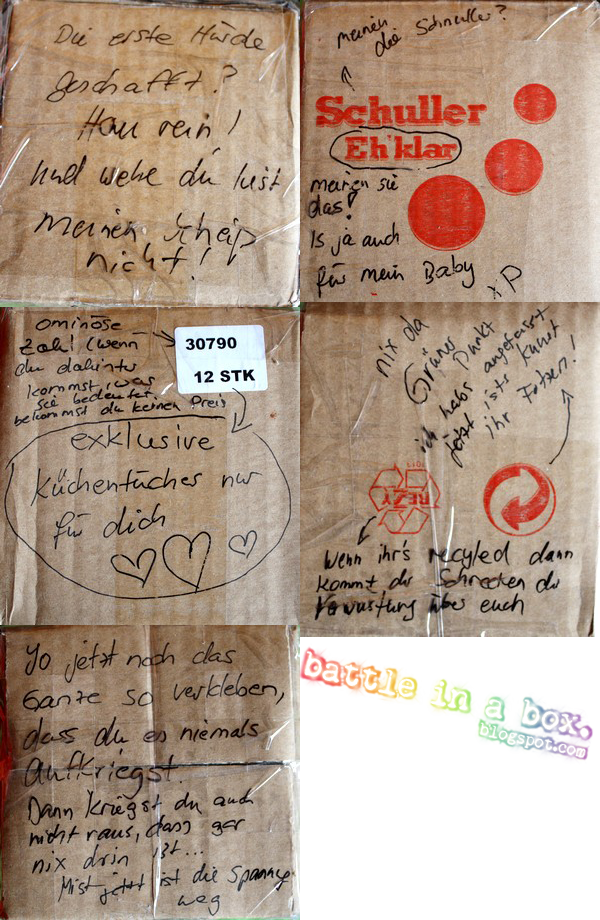 Die erste Hürde
geschafft?
Hau rein!
Und wehe du liest
meinen
nicht!
meinen die Schnuller?
Schuller
Eh'klar
meinen sie
das?
Is ja auch
für mein Baby
xP
ominöse
Zahl (wenn
du dahinter
kommst, was
sie bedeutet,
bekommst du keinen Preis
30790
12 STK
exklusive
Küchentücher nur
für dich
nix da
Grüner Punkt
ich habs angefasst
jetzt ists Kunst
ihr Fotzen!
REZY
Wenn ihr's recyled dann
kommt der Schrecken der
Verwüstung über euch
Yo jetzt noch das
Ganze so verkleben,
dass du es niemals
Aufkriegst.
Dann kriegst du auch
nicht raus, dass gar
nix drin ist...
Mist jetzt ist die Spannung
weg
battle in a box.
blogspot.com